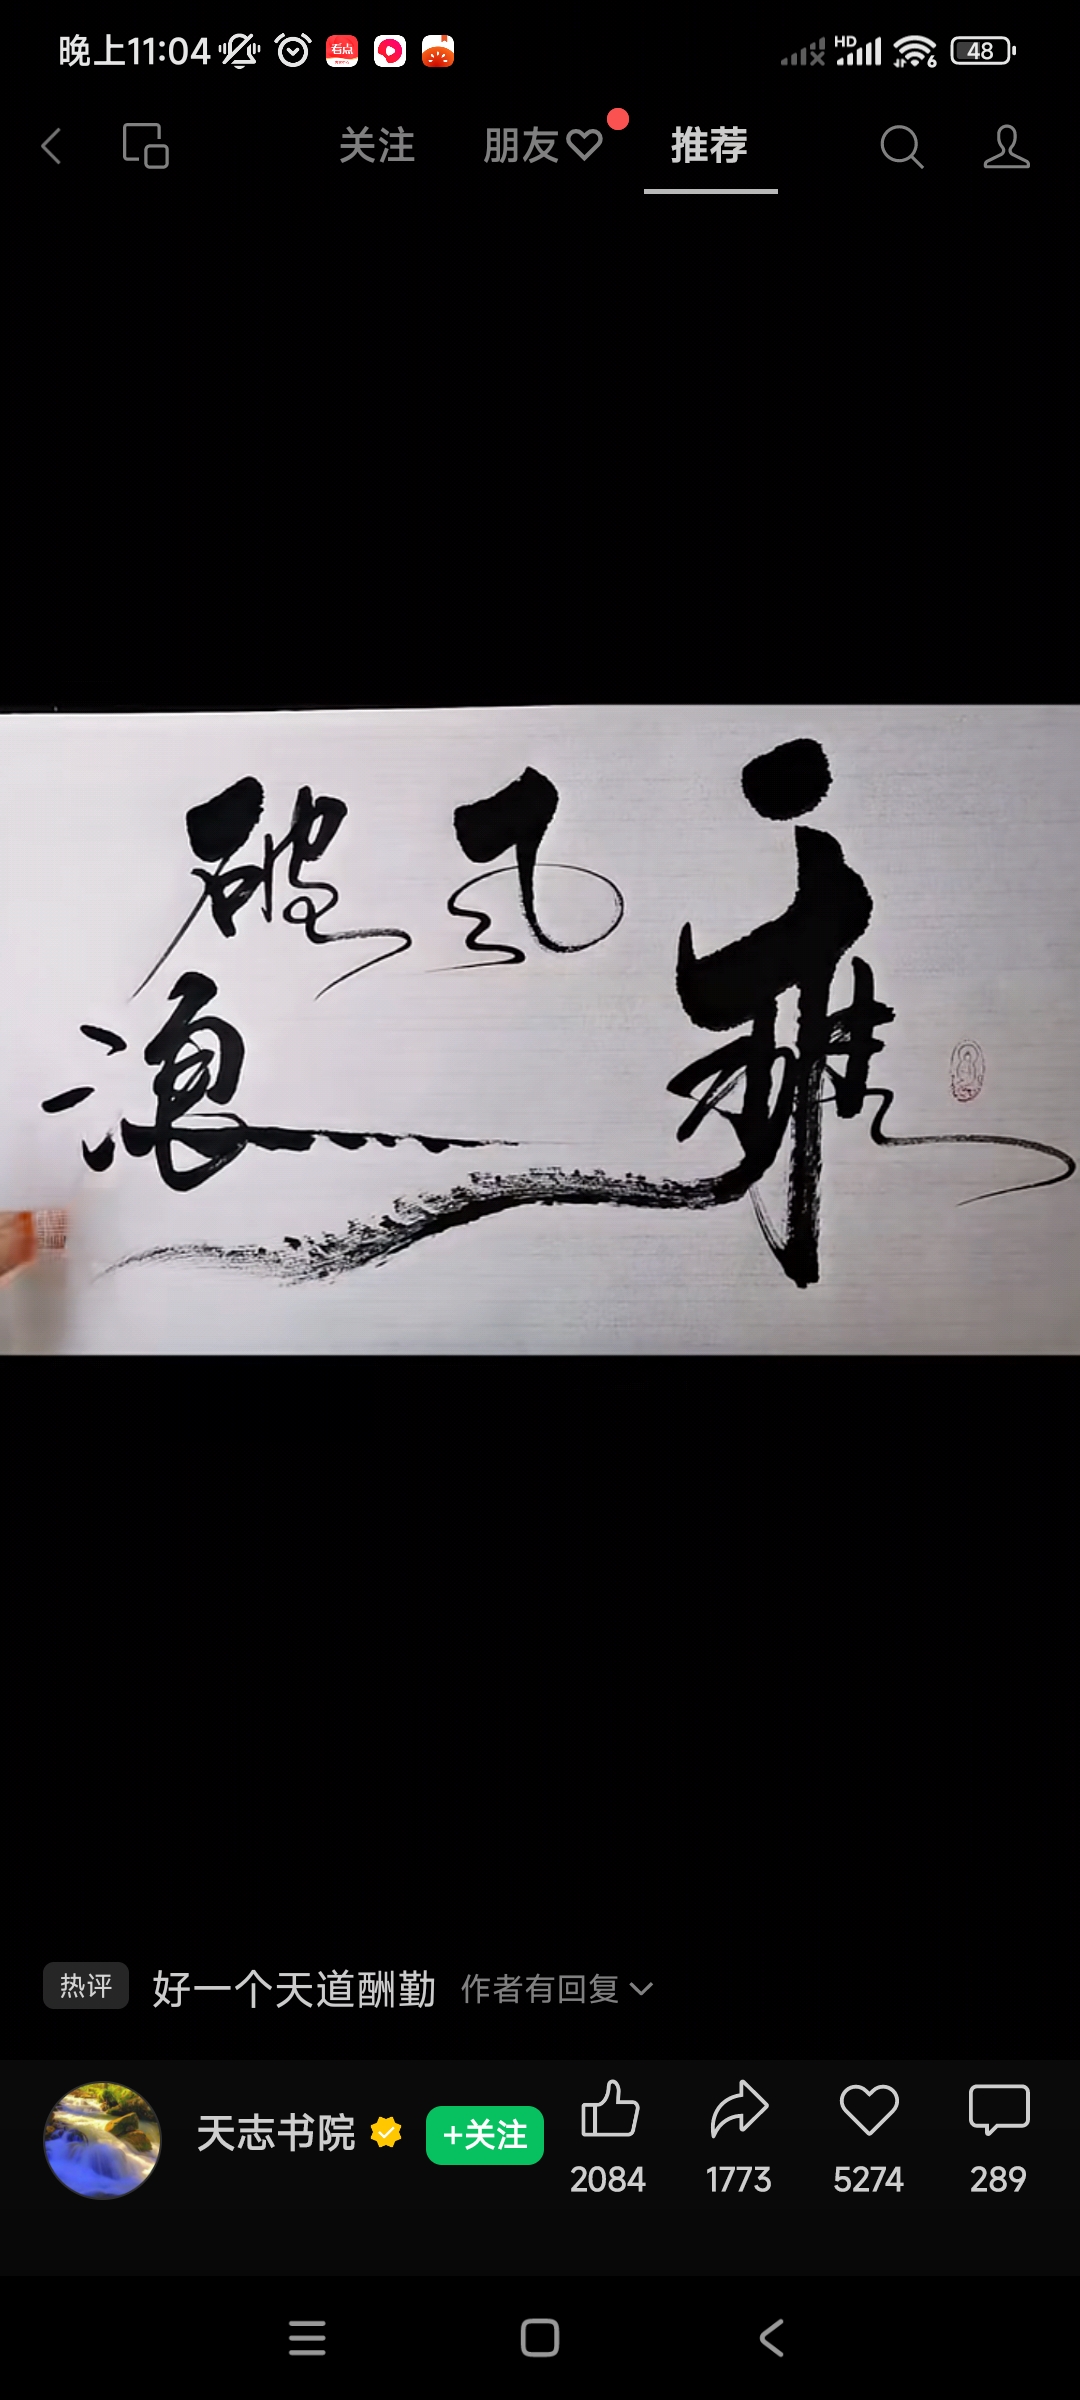 晚上11:04
看点
HD
6
48
关注 朋友 推荐
乘风破
浪
热评 好一个天道酬勤 作者有回复
天志书院 +关注
2084 1773 5274 289